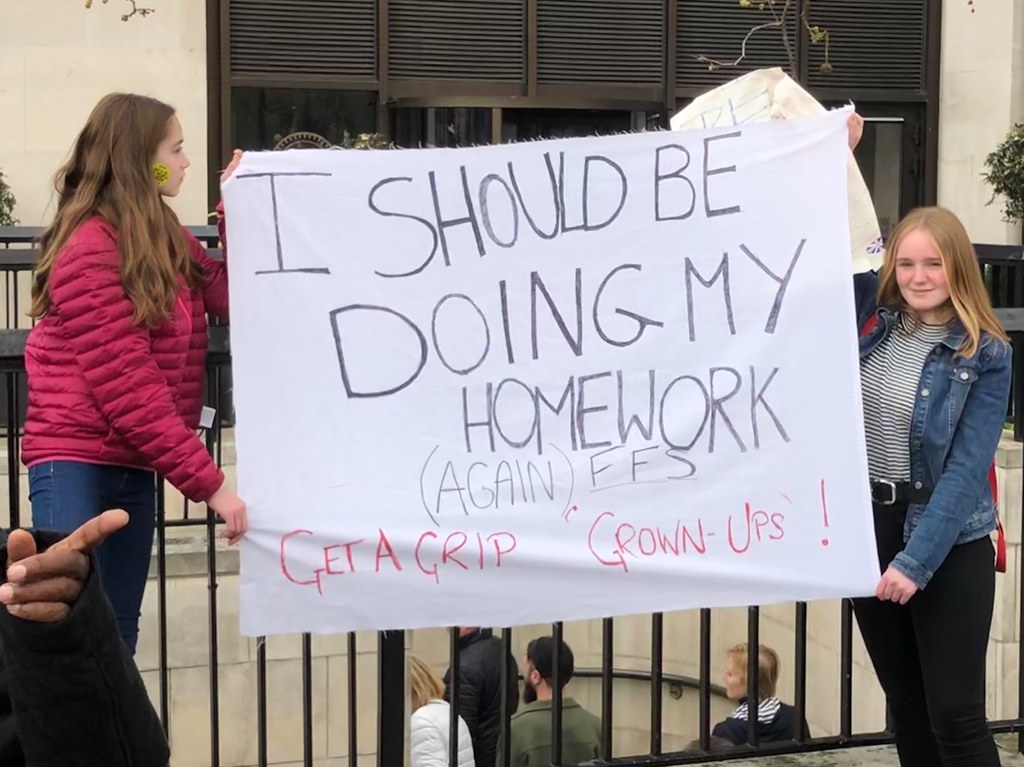 I SHOULD BE
DOING MY
HOMEWORK
(AGAIN) FFS
GET A GRIP 'GROWN-UPS' !